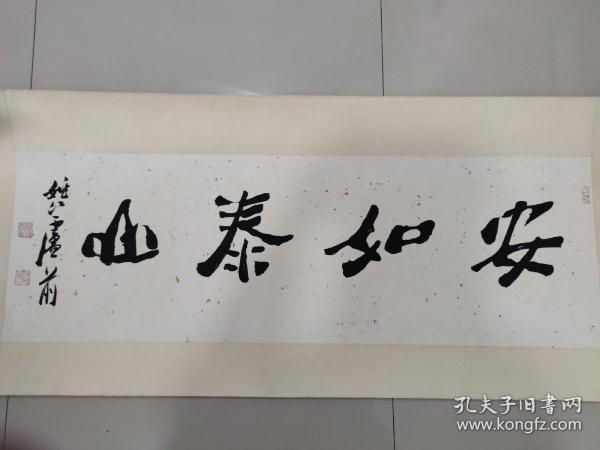 安如泰山
孔夫子旧书网
www.kongfz.com